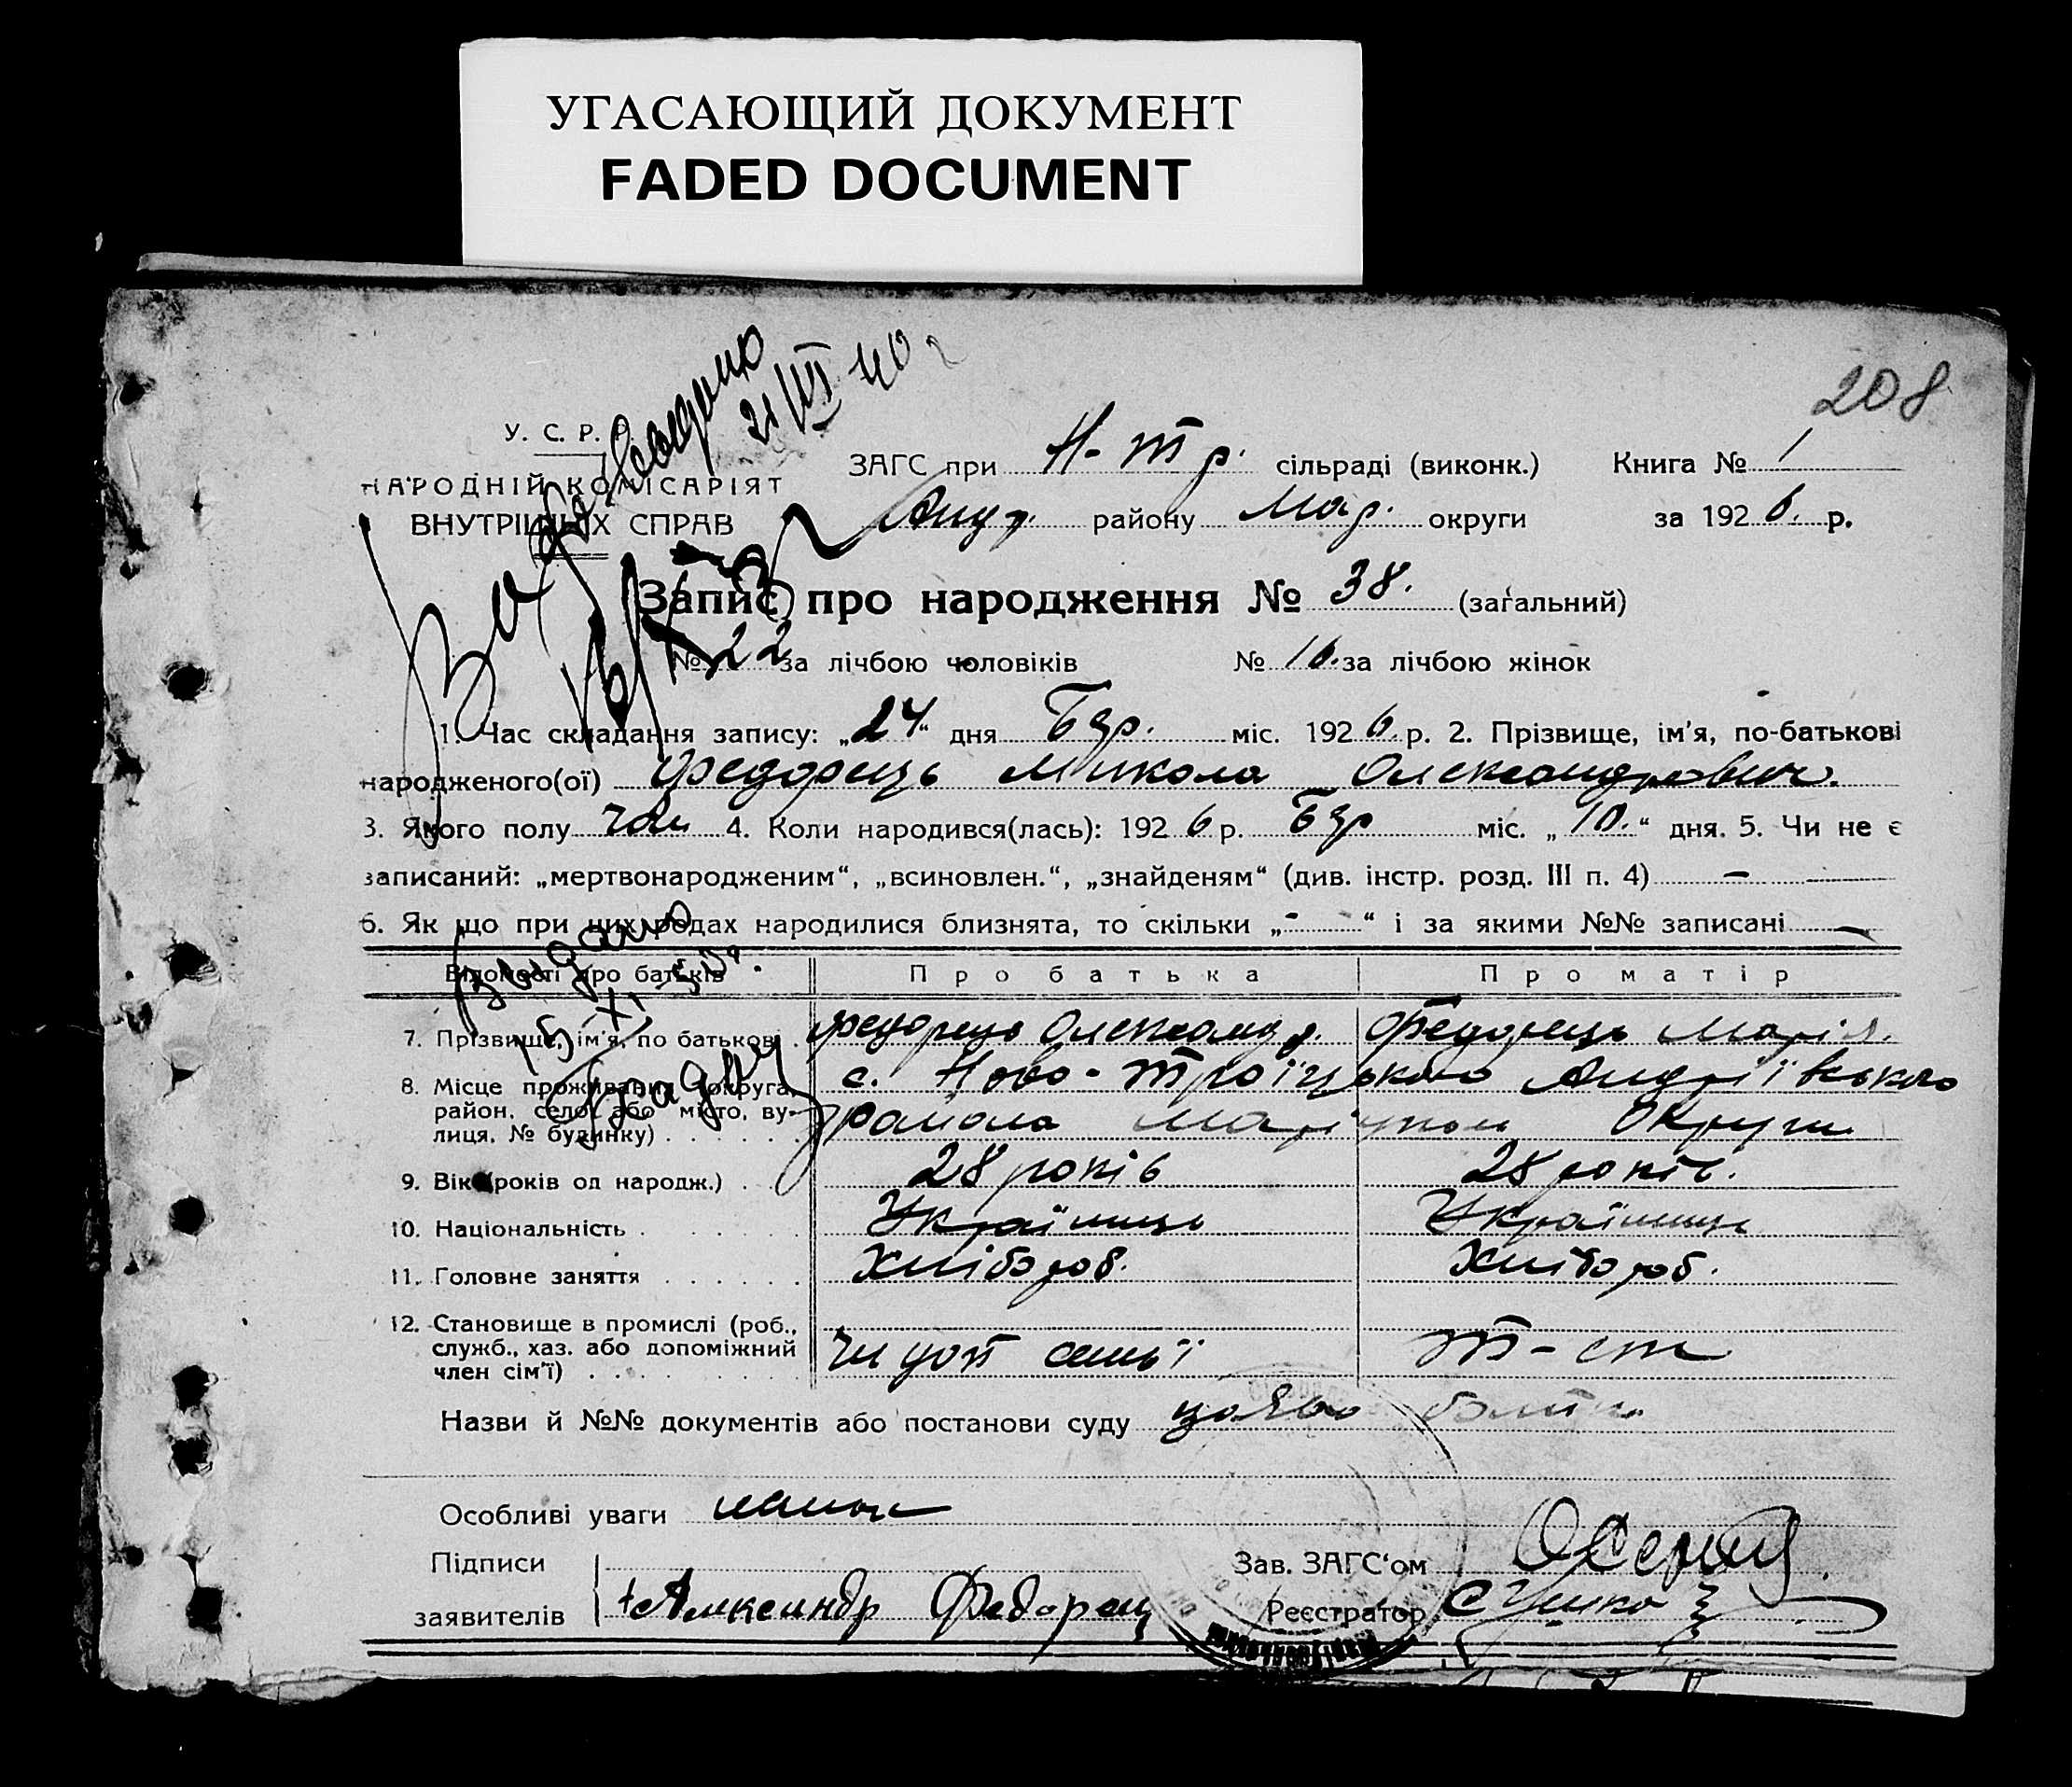 УГАСАЮЩИЙ ДОКУМЕНТ
FADED DOCUMENT
208
21/VI 40 г
У. С. Р. Р.
НАРОДНІЙ КОМІСАРІЯТ
ВНУТРІШНІХ СПРАВ
ЗАГС при Н-Тр. сільраді (виконк.) Книга № 1
Андр. району Мар. округи за 1926. р.
Запис про народження № 38. (загальний)
№ 22 за лічбою чоловіків № 16. за лічбою жінок
1. Час складання запису: „24“ дня Бзр. міс. 1926. р. 2. Прізвище, ім'я, по-батькові
народженого(ої) Федорець Микола Олександрович.
3. Якого полу чол 4. Коли народився(лась): 1926 р. Бзр міс. „10.“ дня. 5. Чи не є
записаний: „мертвонародженим“, „всиновлен.“, „знайденям“ (див. інстр. розд. III п. 4) —
6. Як що при цих родах народилися близнята, то скільки „-“ і за якими №№ записані —
Видано
15/XI
Відомості про батьків Про батька Про матір
7. Прізвище, ім'я, по батькові . Федорець Олександр. Федорець Марія.
8. Місце проживання (округа, с. Ново-Троїцького Андріївського
район, село, або місто, ву- района Маріупол Округи
лиця, № будинку) . . . . . .
9. Вік (років од народж.) . . 28 років 28 років.
10. Національність . . . . . Українець Українець
11. Головне заняття . . . . . . Хлібороб. Хлібороб.
12. Становище в промислі (роб.,
служб., хаз. або допоміжний Чл доп семьї т-ст
член сім'ї) . . . . . . . .
Назви й №№ документів або постанови суду
Особливі уваги
Підписи Зав. ЗАГС‘ом
заявителів Александр Федорец Реєстратор